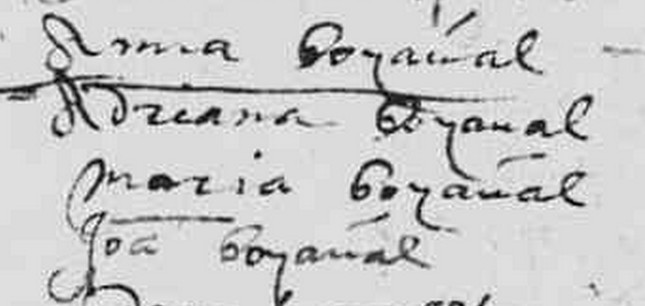 Anna Boyaual
Adriana Boyaual
Maria Boyaual
Joa Boyaual